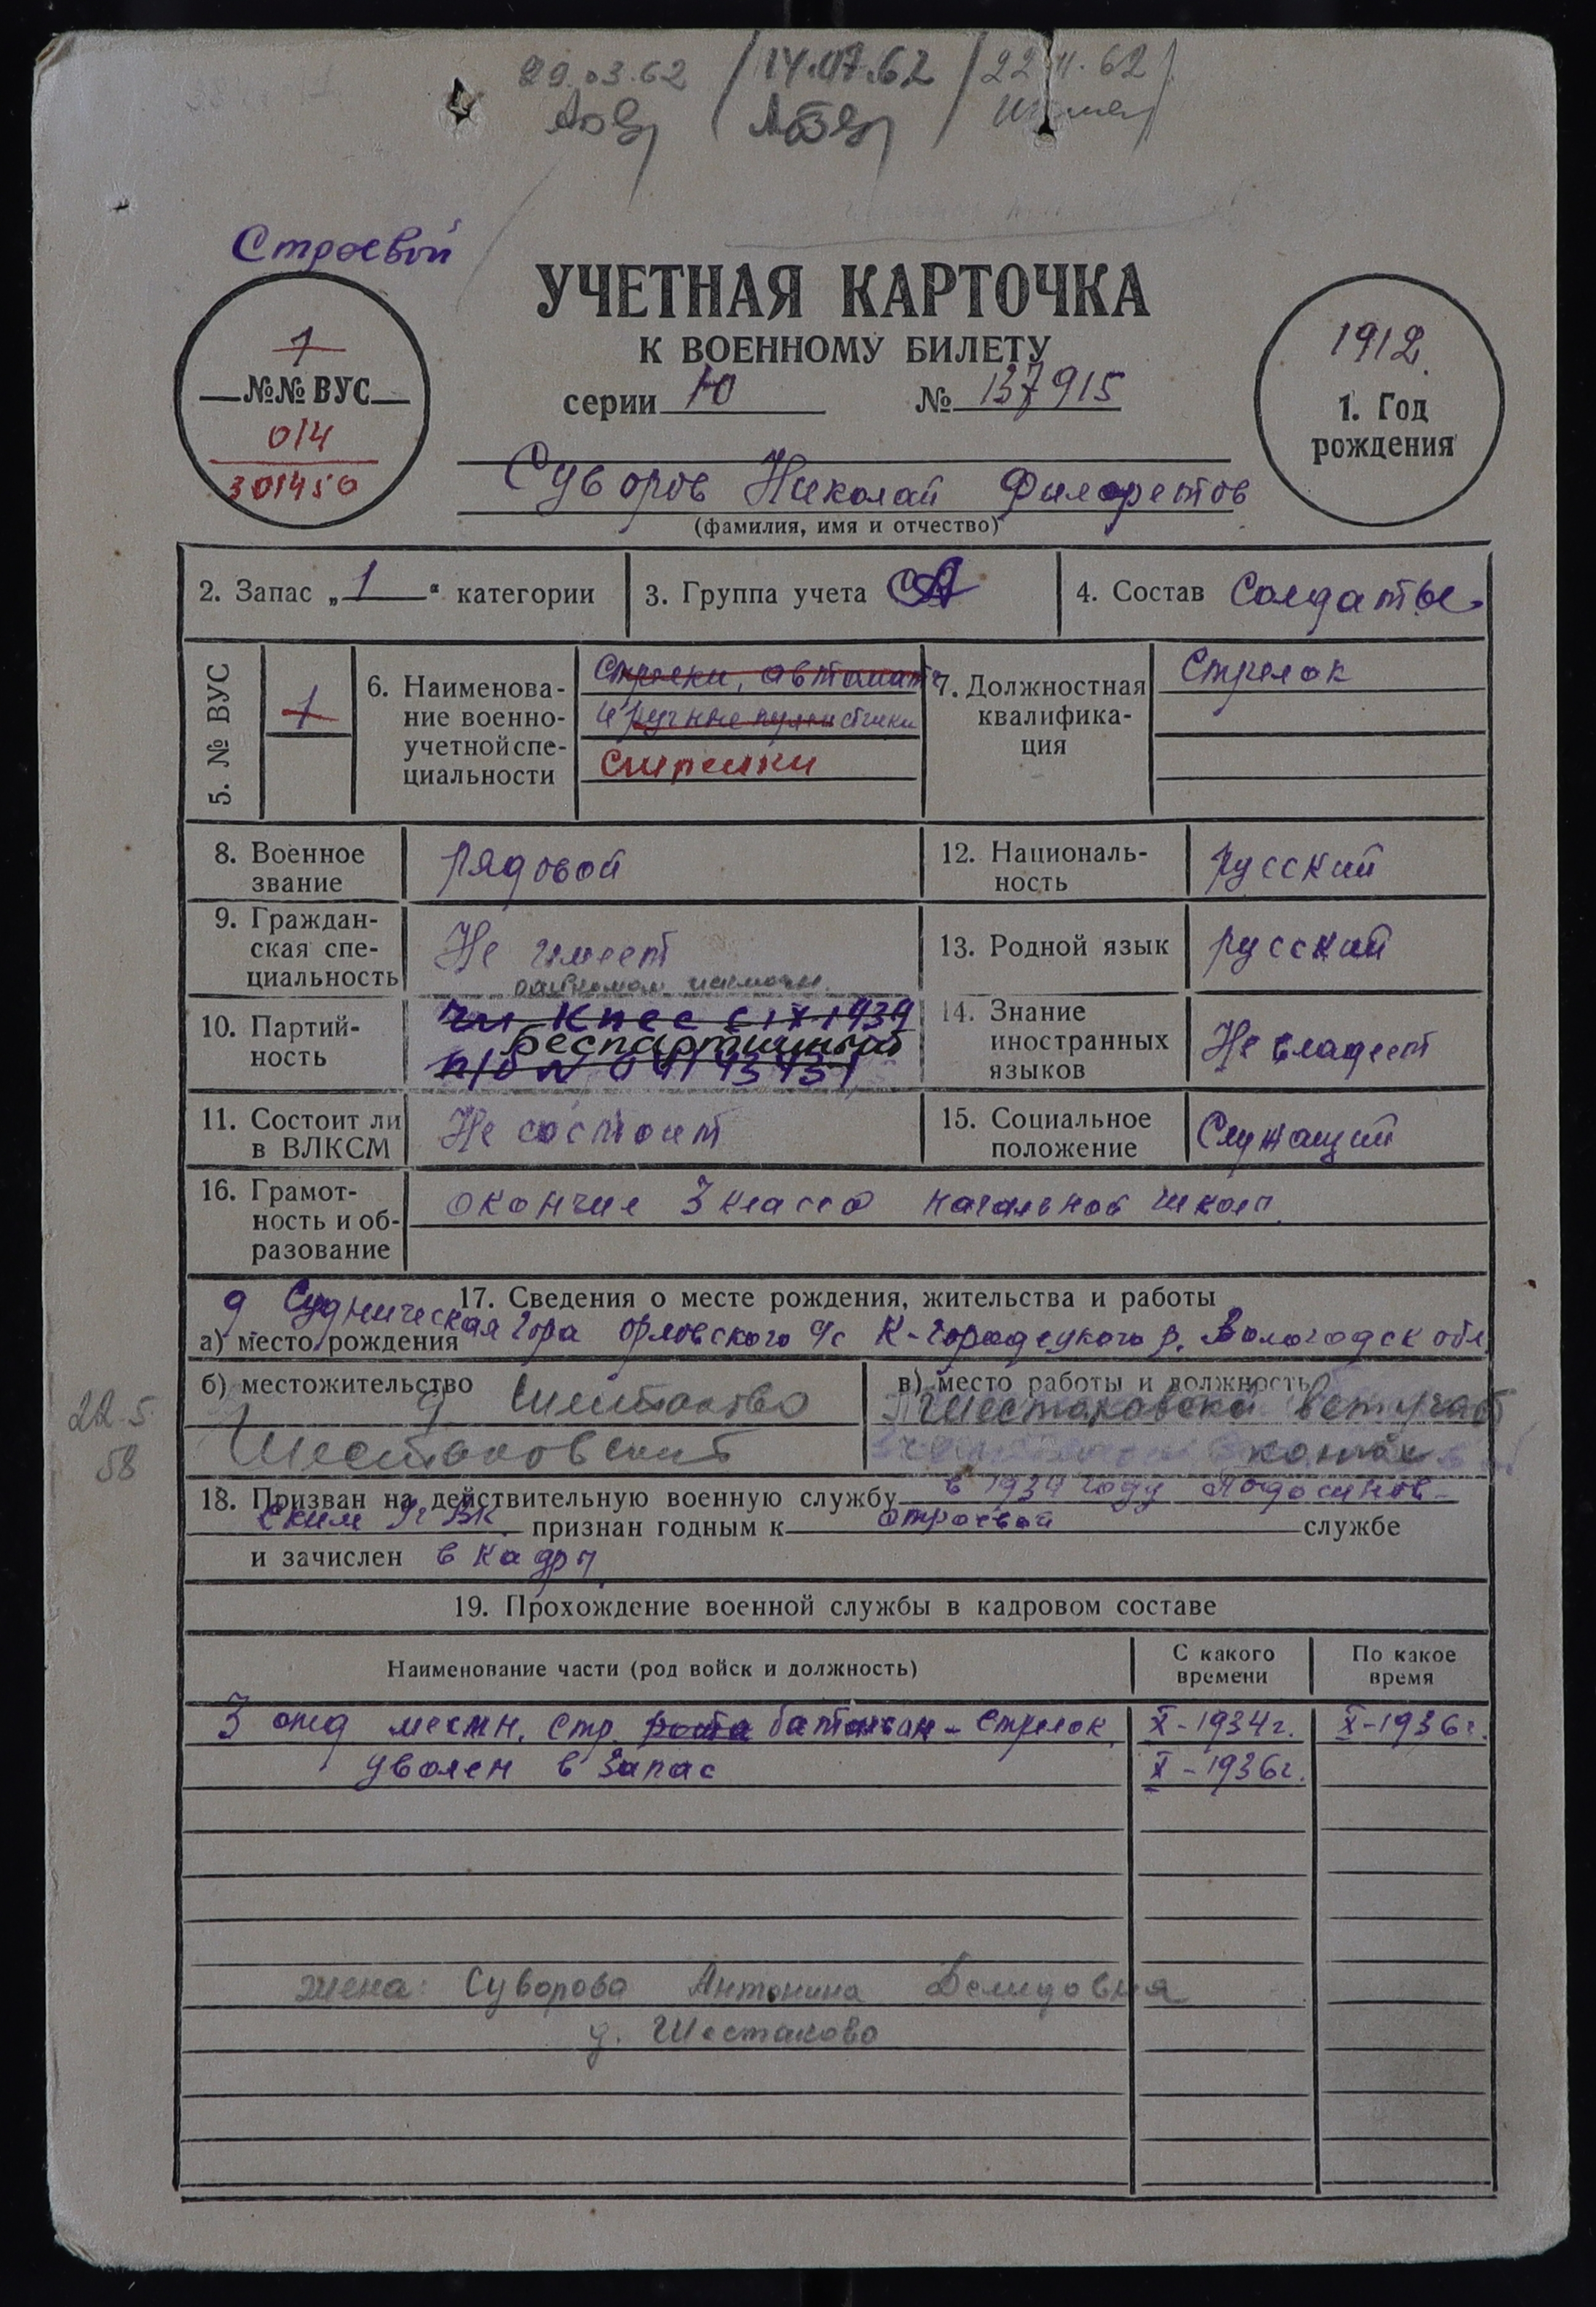 29.03.62 / 14.07.62 / 22.11.62
Строевой
УЧЕТНАЯ КАРТОЧКА
К ВОЕННОМУ БИЛЕТУ
серии Ю № 137915
1
№№ ВУС
014
301450
1912
1. Год
рождения
Суворов Николай Филаретов
(фамилия, имя и отчество)
2. Запас „1“ категории
3. Группа учета СА
4. Состав Солдаты
5. № ВУС
1
6. Наименова-
ние военно-
учетной спе-
циальности
Стрелки, автомат
и ручные пулеметчики
Стрелки
7. Должностная
квалифика-
ция
Стрелок
8. Военное
звание
рядовой
12. Националь-
ность
русский
9. Граждан-
ская спе-
циальность
Не имеет
13. Родной язык
русский
10. Партий-
ность
чл КПСС с IX-1939
беспартийный
п/б №
14. Знание
иностранных
языков
Не владеет
11. Состоит ли
в ВЛКСМ
Не состоит
15. Социальное
положение
Служащий
16. Грамот-
ность и об-
разование
окончил 3 класса начальной школ
17. Сведения о месте рождения, жительства и работы
а) место рождения
д Судническая гора Орловского с/с К-Городецкого р. Вологодск обл.
22.5
58
б) местожительство д Шестаково
Шестаковский
в) место работы и должность
Шестаковский ветучаст
конюх
18. Призван на действительную военную службу в 1934 году Подосинов-
ским РВК признан годным к строевой службе
и зачислен в кадры
19. Прохождение военной службы в кадровом составе
Наименование части (род войск и должность)
С какого
времени
По какое
время
3 отд местн. стр. рота батальон - стрелок. X-1934г. X-1936г.
уволен в запас X-1936г.
жена: Суворова Антонина Демидовна
д. Шестаково